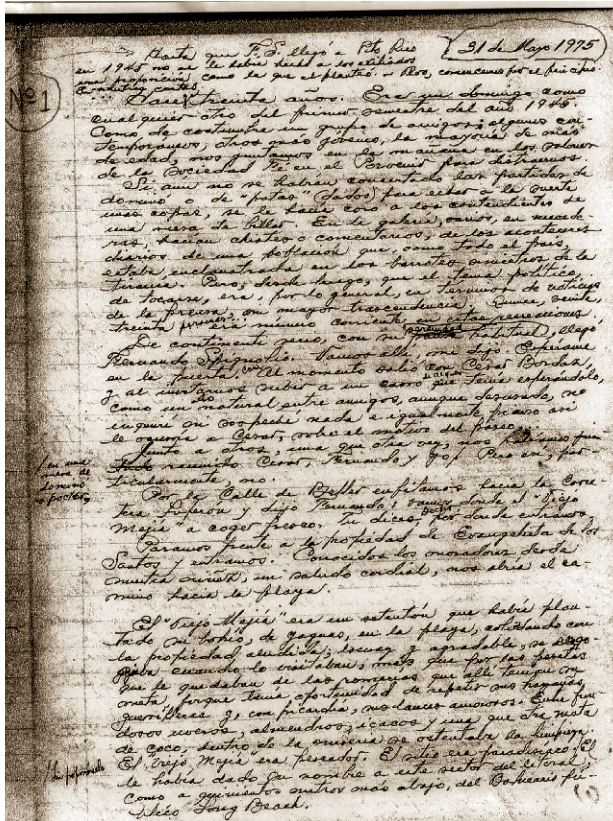 Hasta que F.S. llegó a Pto Rico
31 de Mayo 1975
en 1945 no se le había hecho a los exiliados
una proposición como la que él planteó. - Pero, comencemos por el principio.
Nº 1
Hace treinta años. Era un domingo como
cualquier otro del primer semestre del año 1945.
Como de costumbre un grupo de amigos, algunos con-
temporaneos, otros más jovenes, la mayoría de más
de edad, nos juntamos en la mañana en los salones
de la Sociedad Fe en el Porvenir para distraernos.
Si aun no se habían concertado las partidas de
dominó o de "patas" (dados) para echar a la suerte
unas copas, se le hacía coro a los contendientes de
una mesa de billar. En la galería, varios, en mecedo-
ras, hacían chistes o comentarios, de los aconteceres
diarios de una poblacion que, como todo el país,
estaba enclaustrada en los barrotes siniestros de la
tirania. Pero, desde luego, que el tema político,
de tocarse, era, por lo general, en términos de noticias
de la prensa, sin mayor trascendencia. Quince, veinte,
treinta personas era número corriente en estas reuniones.
De continente serio, con su habitual, llegó
Fernando Spignolio. Vamos allí, me dijo. Espérame
en la puerta. Al momento salió con Cesar Brudoz
y al invitarme subir a un carro que tenía esperándolo,
como un natural entre amigos, aunque desusado, no
inquirí ni sospeché nada e igualmente pienso así
le ocurría a Cesar, sobre el motivo del paseo.
Junto a otros, una que otra vez, nos habíamos
reunido Cesar, Fernando y yo. Pero en, par-
ticularmente, no.
/en una
mesa de
dominó
o pocker,
Por la Calle de Beller enfilamos hacia la Carre
tera Luperon y dijo Fernando: vamos donde el "Viejo
Mejía" a coger fresco. Tu dices por donde entramos
Paramos frente a la propiedad de Evangelista de los
Santos y entramos. Conocidos los moradores desde
mucha, un saludo cordial, nos abría el ca-
mino hacia la playa.
El "Viejo Mejía" era un setentón que había plan-
tado su bohío, de yaguas, en la playa, colindando con
la propiedad aludida; locuaz y agradable, se
cuando lo visitaban, más que por las pesetas
que le quedaban de las romerías que allí tenían su
meta, porque tenía oportunidad de repetir sus hazañas
guerrilleras y, con picardia, sus lances amorosos. Entre fron
dosos uveros, almendros, icacos y una que otra mata
de coco, dentro de la miseria se ostentaba la limpieza.
El viejo Mejía era pescador. El sitio era paradisiaco. El
le había dado su nombre a este sector del litoral,
como a quinientos metros más abajo, del Balneario pú-
blico Long Beach.
(1)